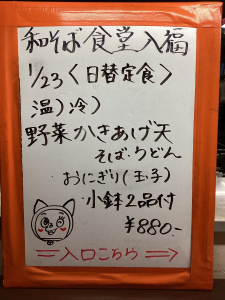 和そば食堂入福
1/23〈日替定食〉
温)冷)
野菜かきあげ天
そば・うどん
おにぎり(玉子)
小鉢2品付
¥880-
入口こちら